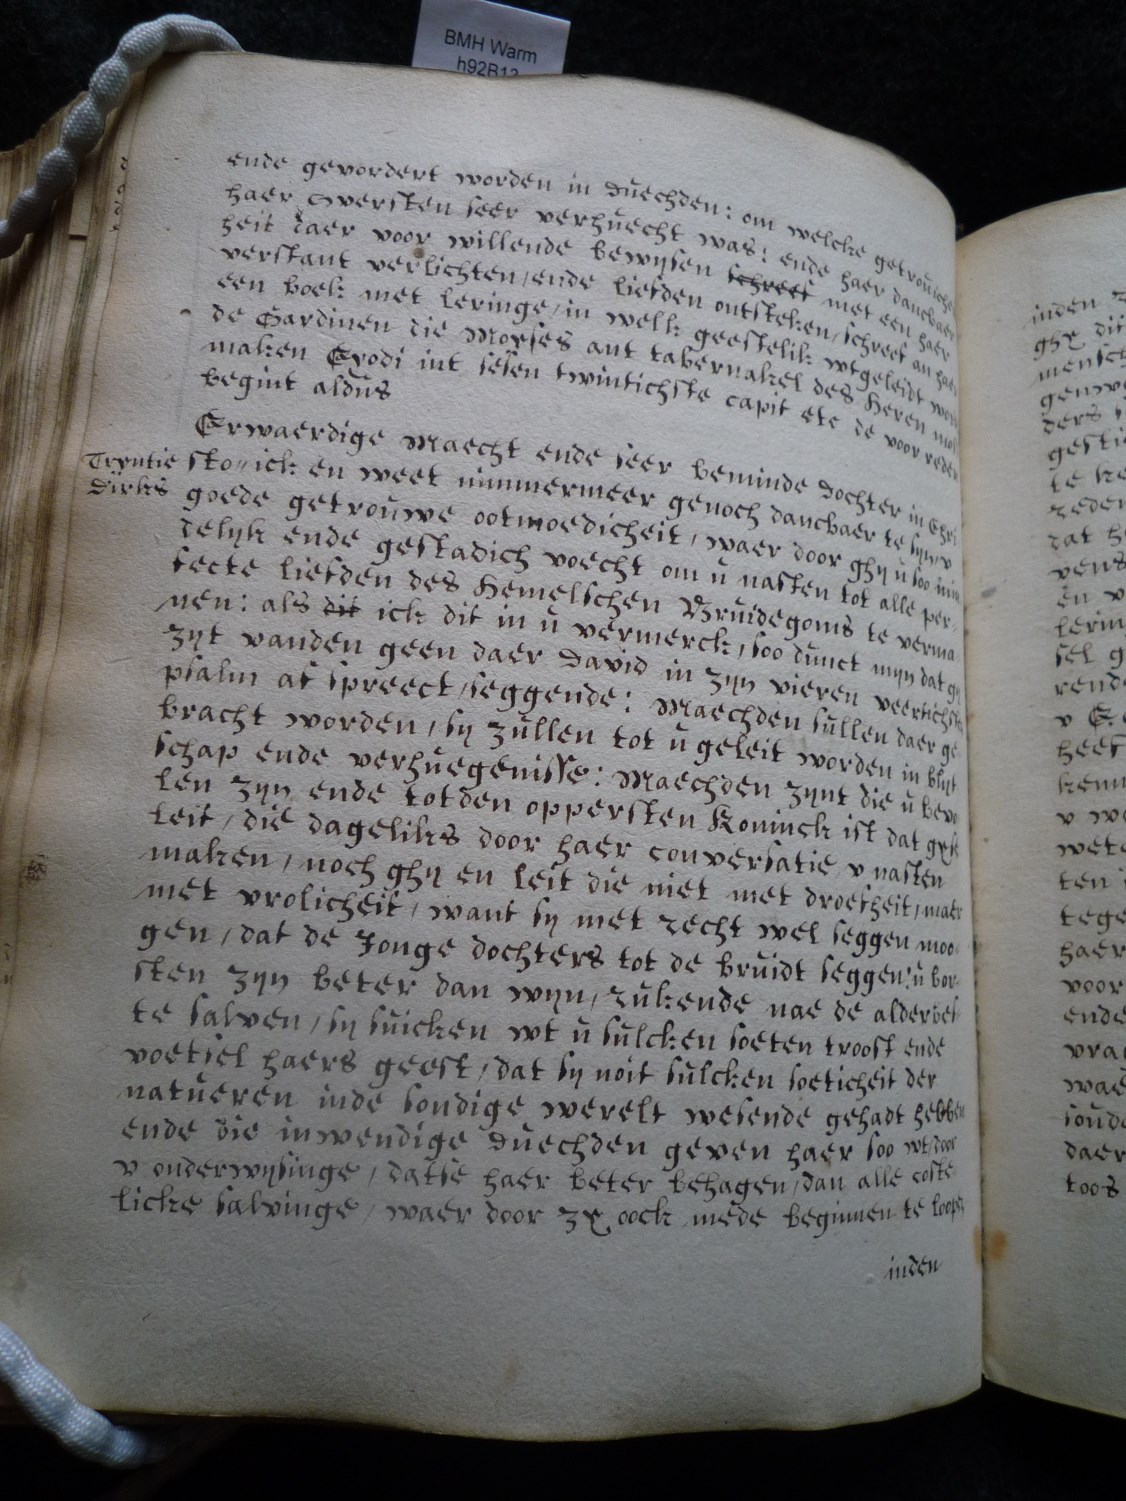 BMH Warm
h92B12
ende gevordert worden in duechden: om welcke getrouiche
haer oversten seer verhuecht was: ende haer dancbaer
heit daer voor willende bewijsen schreef met een haer
verstant verlichten/ende liefden ontsteken/schreef an haer
een boek met leringe/in welk geestelik wtgeleidt word
de Gardinen die Moyses ant tabernakel des Heren most
maken Exodi int sesen twintichste capit etc de voor reden
begint aldus
Erwaerdige Maecht ende seer beminde dochter in Chri
Tryntie
Dirks
sto// ick en weet nimmermeer genoch dancbaer te syn v
goede getrouwe ootmoedicheit/waer door ghij u soo min
delijk ende gestadich voecht om u nasten tot alle per-
fecte liefden des Hemelschen Bruidegoms te verma
nen: als dit ick dit in u vermerck/soo dunct mijn dat gij
zijt vanden geen daer David in zijn vieren veertichste
psalm af spreect/seggende: Maechden sullen daer ge
bracht worden/sij zullen tot u geleit worden in blijt
schap ende verhuegenisse: Maechden zijnt die u bevo
len zijn ende totden oppersten Koninck ist dat gyse
leit/die dageliks door haer conversatie v nasten
maken/noch ghij en leit die niet met droefheit/maer
met vrolicheit/want sij met recht wel seggen moo-
gen/dat de Jonge dochters tot de bruidt seggen: u bor-
sten zijn beter dan wijn/rukende nae de alderbes-
te salven/sij suicken wt u sulcken soeten troost ende
voetsel haers geest/dat sij noit sulcken soeticheit der
natueren inde sondige werelt wesende gehadt hebben
ende die inwendige duechden geven haer soo wt/door
v onderwijsinge/datse haer beter behagen/dan alle coste
licke salvinge/waer door zy oock mede beginnen te loopen
inden
inden
ghy dit
mensch
ders
te
dat
lerin
sel
v
heef
v
wete
ten
tege
haer
voor
ende
vra
wae
soude
daer
toos